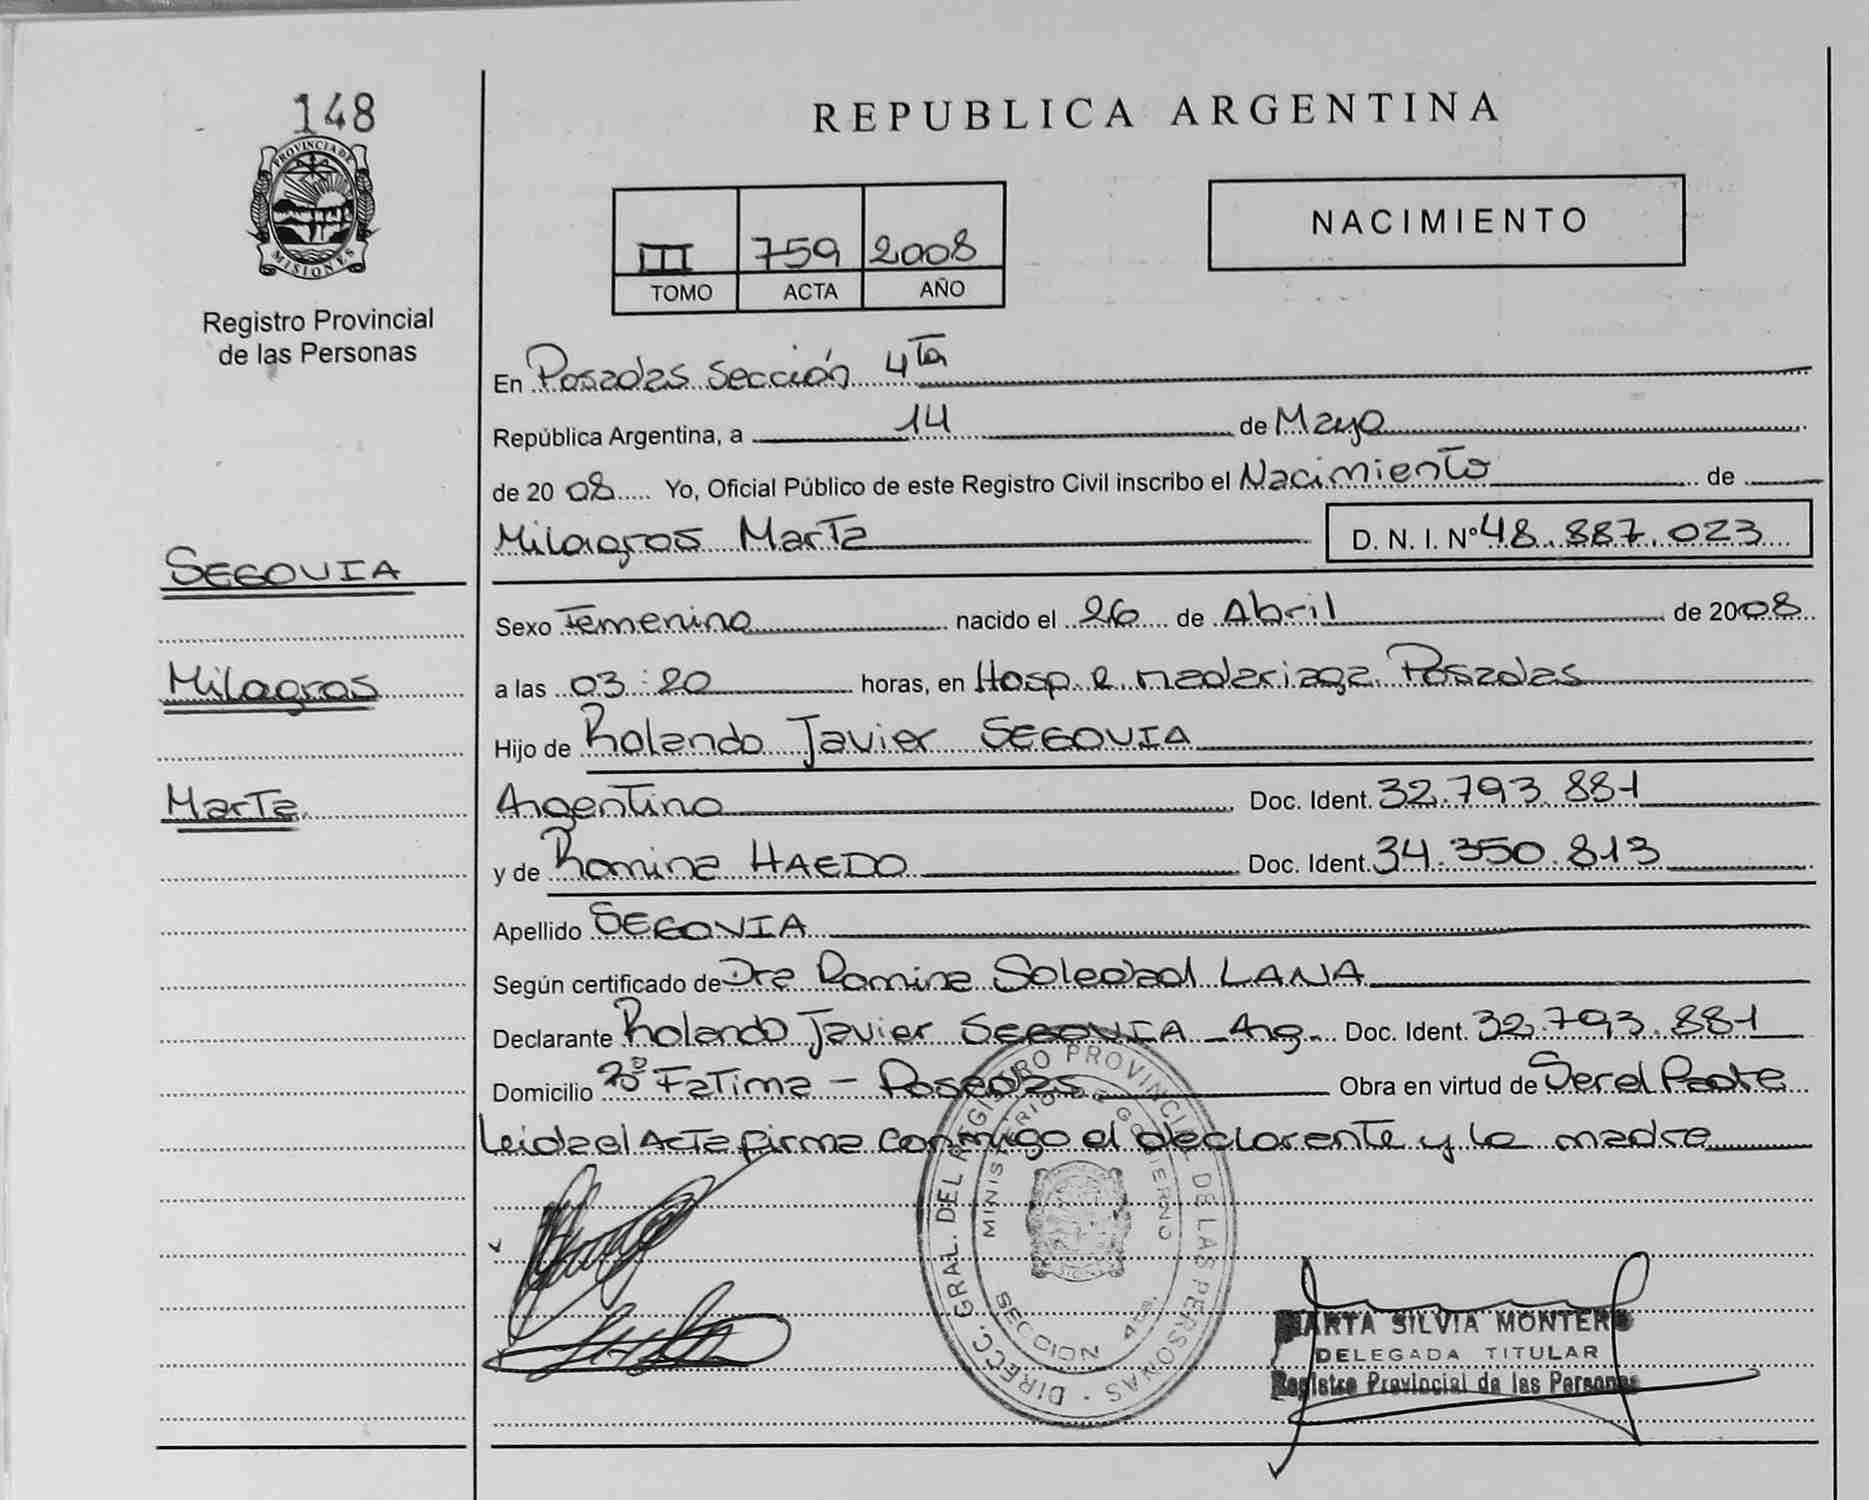 148
PROVINCIA DE
MISIONES
Registro Provincial
de las Personas
REPUBLICA ARGENTINA
III 759 2008
TOMO ACTA AÑO
NACIMIENTO
En Posadas Sección 4ta
República Argentina, a 14 de Mayo
de 20 08 Yo, Oficial Público de este Registro Civil inscribo el Nacimiento de
Milagros Marta D. N. I. Nº 48.887.023
SEGOVIA
Sexo Femenino nacido el 26 de Abril de 2008
Milagros
a las 03:20 horas, en Hosp. R. Madariaga Posadas
Hijo de Rolando Javier SEGOVIA
Marta
Argentino Doc. Ident. 32.793.881
y de Romina HAEDO Doc. Ident. 34.350.813
Apellido SEGOVIA
Según certificado de Dra Romina Soledad LANA
Declarante Rolando Javier SEGOVIA - Arg. Doc. Ident. 32.793.881
Domicilio Bº Fatima - Posadas Obra en virtud de Ser el Padre
Leida el Acta firma conmigo el declarente y la madre
DIRECC. GRAL. DEL REGISTRO PROVINCIAL DE LAS PERSONAS
MINISTERIO DE GOBIERNO
SECCION 4ta.
MARTA SILVIA MONTERO
DELEGADA TITULAR
Registro Provincial de las Personas